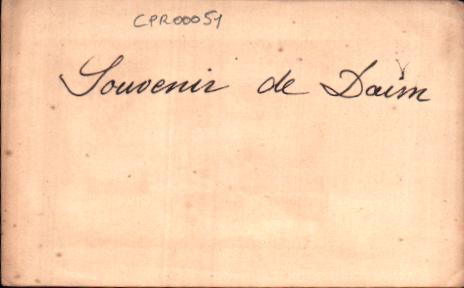 CPR00051
Souvenir de Daïm